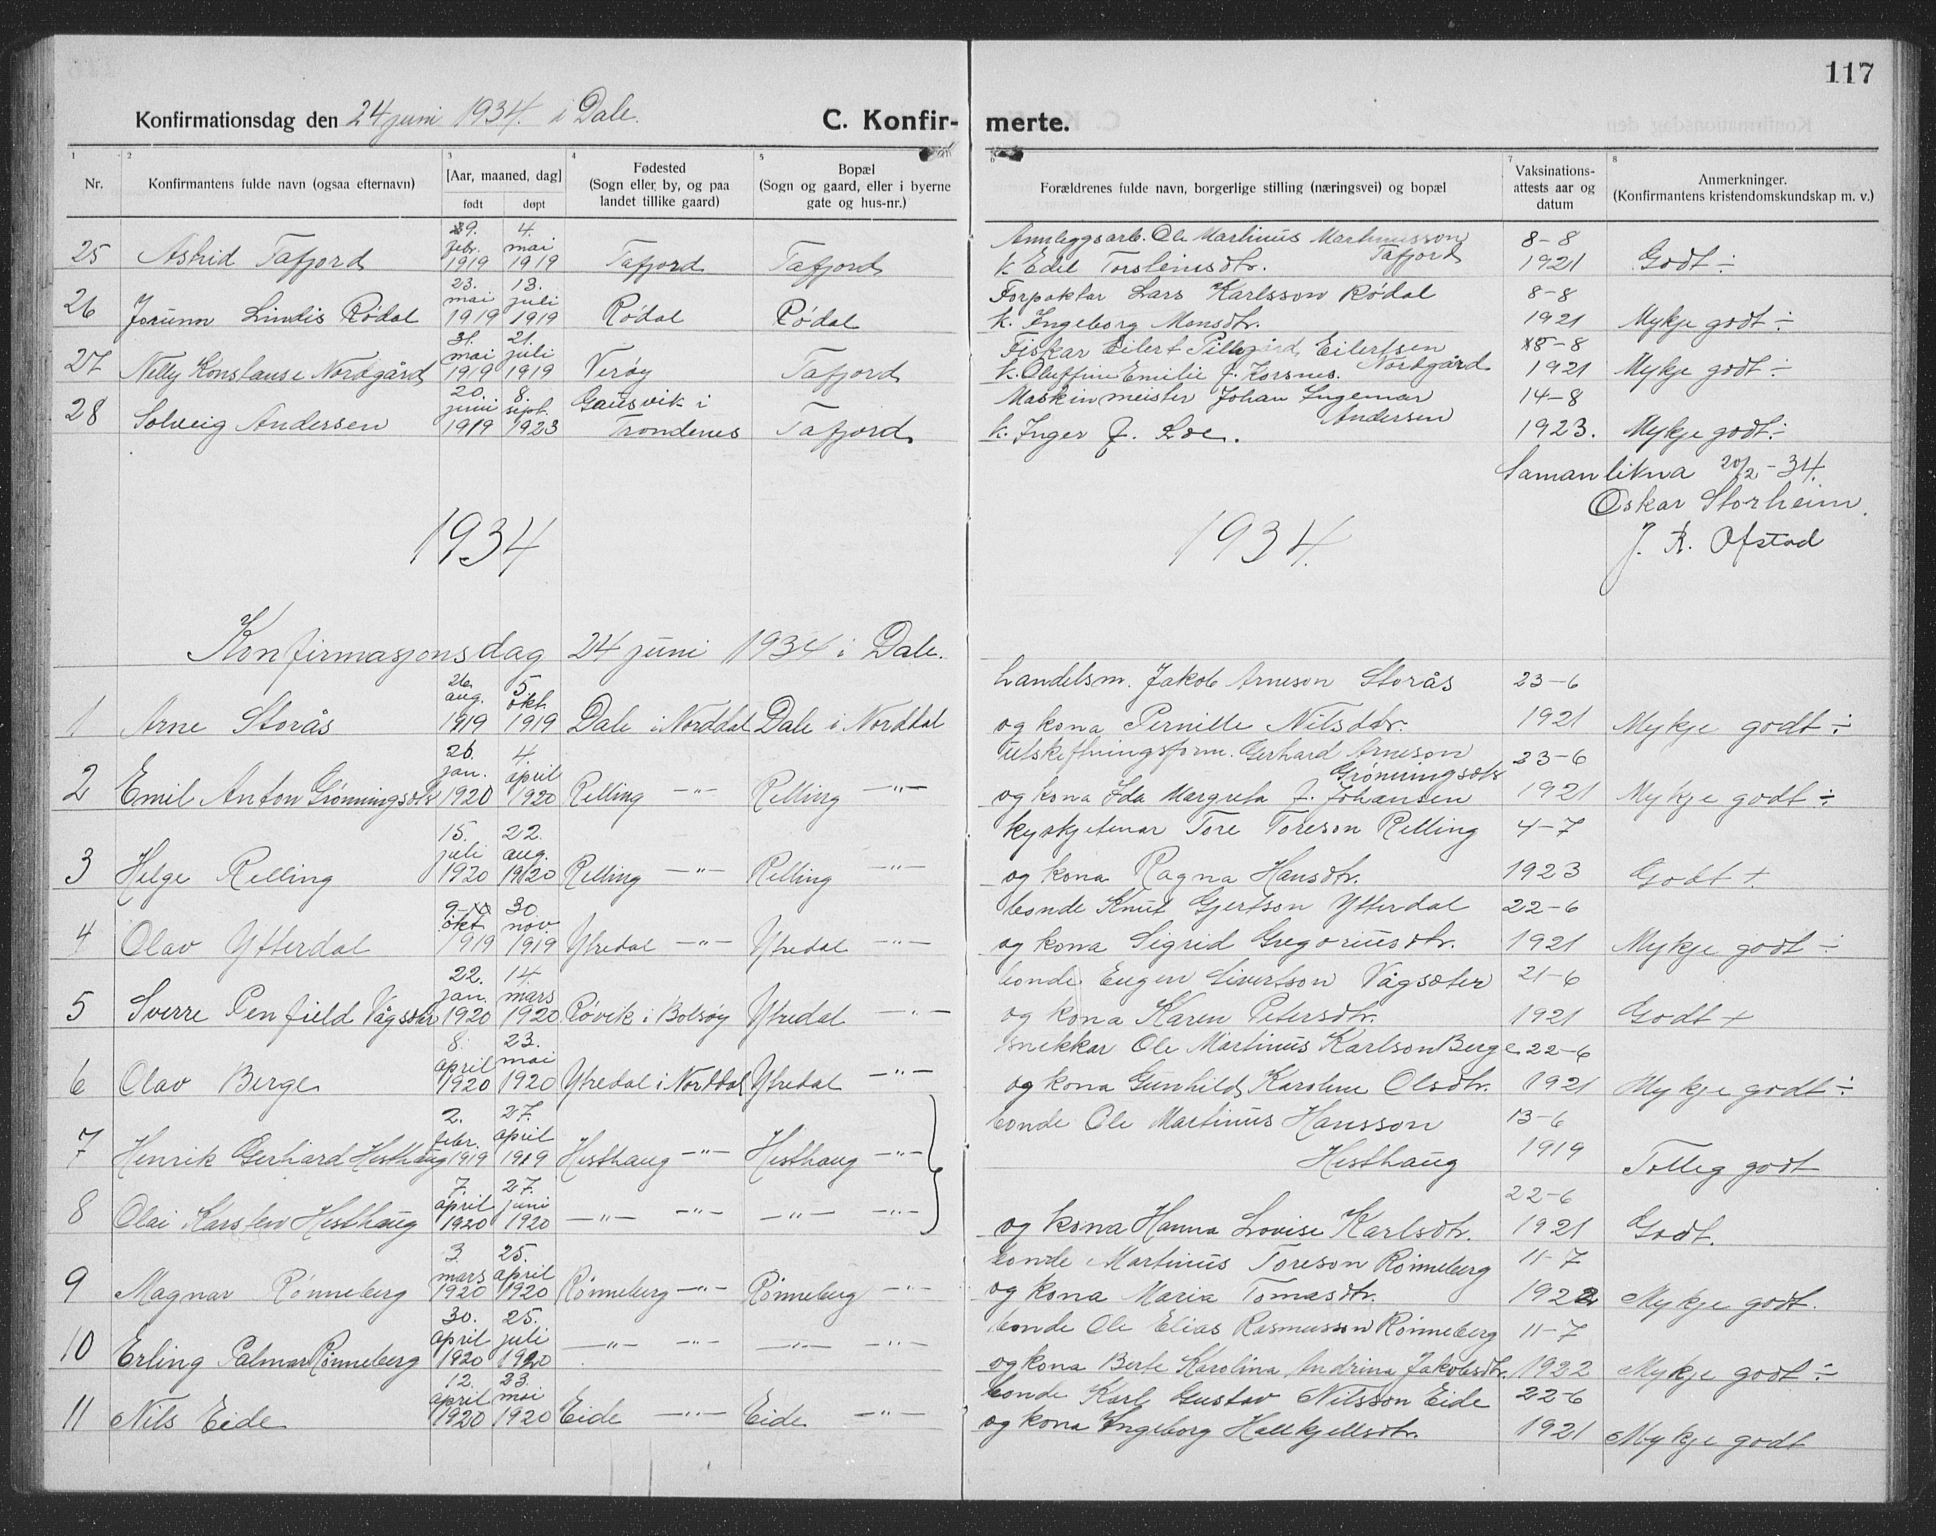 117
Konfirmationsdag den 24 juni 1934. i Dale.
C. Konfir-merte.
1 2 3 4 5 6 7 8
Nr. | Konfirmantens fulde navn (ogsaa efternavn) | [Aar, maaned, dag] født døpt | Fødested (Sogn eller by, og paa landet tillike gaard) | Bopæl (Sogn og gaard, eller i byerne gate og hus-nr.) | Forældrenes fulde navn, borgerlige stilling (næringsvei) og bopæl | Vaksinations-attests aar og datum | Anmerkninger. (Konfirmantens kristendomskundskap m. v.)
25 Astrid Tafjord | febr. 1919 | 4. mai 1919 | Tafjord | Tafjord | Annleggsarb. Ole Martinus Martinusson Tafjord k. Edel Torsteinsdtr. | 8-8 1921 | Godt ÷
26 Jorunn Lindis Rødal | 23. mai 1919 | 13. juli 1919 | Rødal | Rødal | Forpaktar Lars Karlsson Rødal k. Ingeborg Monsdtr. | 8-8 1921 | Mykje godt ÷
27 Nelly Konstanse Nordgård | 31. mai 1919 | 21. juli 1919 | Verøy | Tafjord | Fiskar Eilert Eilertsen Nordgård k. Oluffine Emilie f. Korsnes. | 8-8 1921 | Mykje godt ÷
28 Solveig Andersen | 20. juni 1919 | 8. sept. 1923 | Gausvik i Trondenes | Tafjord | Maskinmeister Johan Ingemar Andersen k. Inger f. Loe. | 14-8 1923. | Mykje godt ÷
Samanlikna 20/2-34.
Oskar Storheim.
J. R. Ofstad
1934 1934.
Konfirmasjonsdag 24 juni 1934 i Dale.
1 Arne Storås | 26 aug. 1919 | 5. okt. 1919 | Dale i Norddal | Dale i Norddal | handelsm. Jakob Arneson Storås og kona Pernille Nilsdtr. | 23-6 1921 | Mykje godt ÷
2 Emil Anton Grønningsæter | 26. jan. 1920 | 4. april 1920 | Relling —"— | Relling —"— | utskiftningsform. Gerhard Arneson Grønningsæter og kona Ida Margreta f. Johansen | 23-6 1921 | Mykje godt ÷
3 Helge Relling | 15. juli 1920 | 22. aug. 1920 | Relling —"— | Relling —"— | kyrkjetenar Tore Toreson Relling og kona Ragna Hansdtr. | 4-7 1923 | Godt +.
4 Olav Ytterdal | 9 okt 1919 | 30 nov. 1919 | Ytredal —"— | Ytredal —"— | bonde Knut Gjertson Ytterdal og kona Sigrid Gregoriusdtr. | 22-6 1921 | Mykje godt ÷
5 Sverre Penfield Vågsæter | 22. jan. 1920 | 14. mars 1920 | Røvik i Bolsøy | Ytredal —"— | bonde Eugen Sivertson Vågsæter og kona Karen Petersdtr. | 21-6 1921 | Godt +
6 Olav Berge | 8. april 1920 | 23. mai 1920 | Ytredal i Norddal | Ytredal —"— | snikkar Ole Martinus Karlson Berge og kona Gunhild Karoline Olsdtr. | 22-6 1921 | Mykje godt ÷
7 Henrik Gerhard Hesthaug | 2. febr. 1919 | 27. april 1919 | Hesthaug —"— | Hesthaug —"— | bonde Ole Martinus Hansson Hesthaug | 13-6 1919 | Tolleg godt
8 Olai Karsten Hesthaug | 7. april 1920 | 27. juni 1920 | —"— —"— | —"— —"— | og kona Hanna Lovise Karlsdtr. | 22-6 1921 | Godt.
9 Magnar Rønneberg | 3. mars 1920 | 25. april 1920 | Rønneberg —"— | Rønneberg —"— | bonde Martinus Toreson Rønneberg og kona Maria Tomasdtr. | 11-7 1922 | Mykje godt.
10 Erling Palmar Rønneberg | 30. april 1920 | 25. juli 1920 | —"— —"— | —"— —"— | bonde Ole Elias Rasmusson Rønneberg og kona Berte Karolina Andrina Jakobsdtr. | 11-7 1922 | Mykje godt ÷
11 Nils Eide | 12. april 1920 | 23. mai 1920 | Eide —"— | Eide —"— | bonde Karl Gustav Nilsson Eide og kona Ingeborg Hallkjellsdtr. | 22-6 1921 | Mykje godt